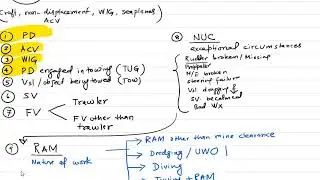 Craft, non-displacement, WIG, seaplanes
ACV
1 PD
2 ACV
3 WIG
4 PD engaged in towing (TUG)
5 Vsl/object being towed (Tow)
6 SV
7 FV
Trawler
FV other than trawler
8 NUC
exceptional circumstances
Rudder broken/Missing
Propeller
M/E broken
steering failure
Vsl dragging
SV becalmed
Bad Wx
9 RAM
Nature of work
RAM other than mine clearance
Dredging / UWO
Diving
Towing + RAM